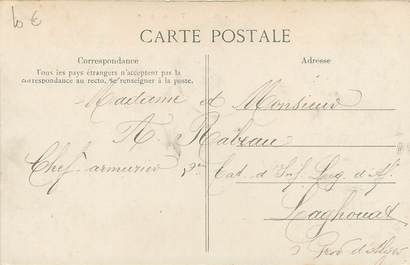 10 €
CARTE POSTALE
Correspondance
Adresse
Tous les pays étrangers n'acceptent pas la
correspondance au recto, se renseigner à la poste.
Madame et Monsieur
A Rabeau
Chef armurier, 2me Bat d'Inf. Leg. d'Af.
Laghouat
Prov d'Alger